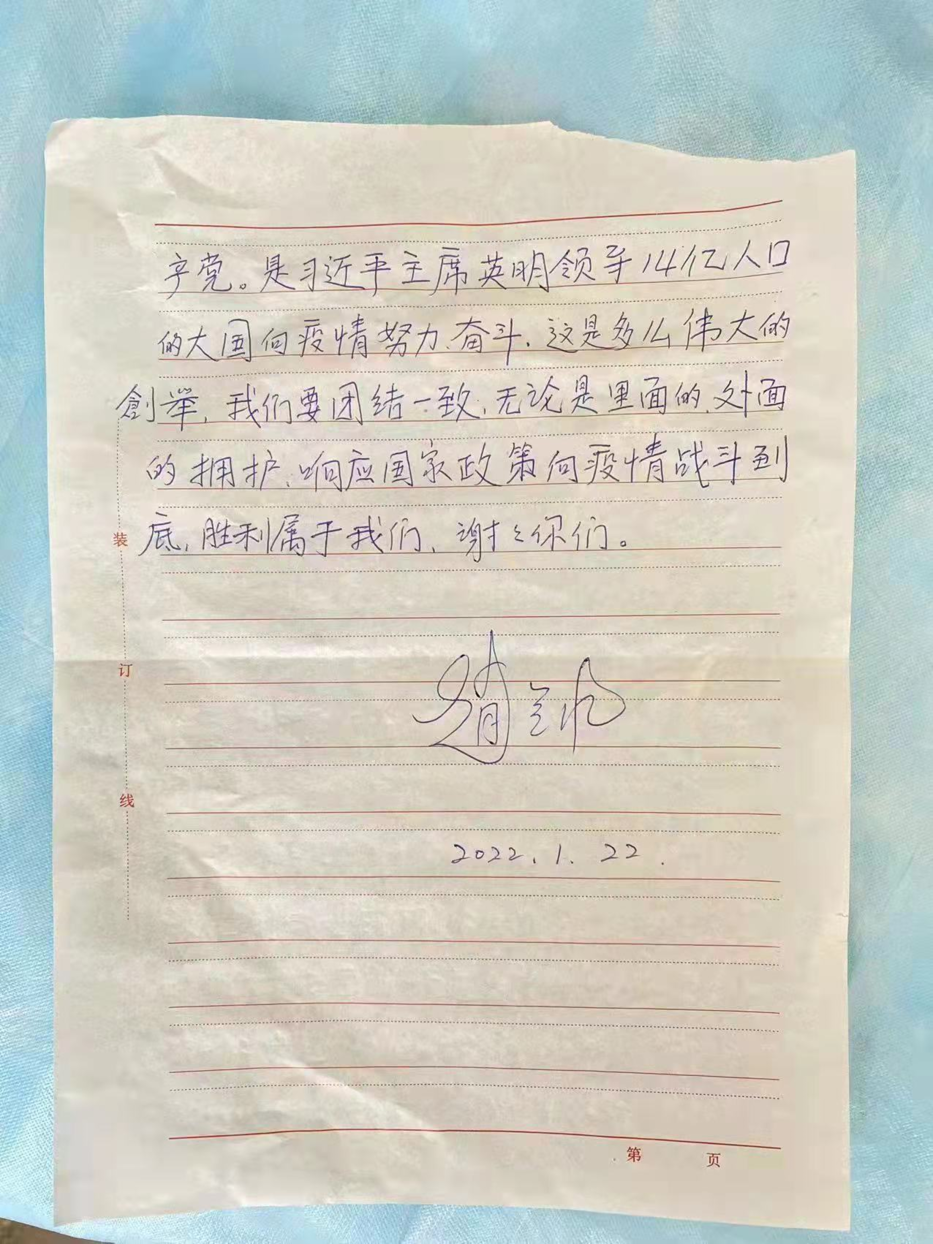 产党。是习近平主席英明领导14亿人口
的大国向疫情努力、奋斗,这是多么伟大的
創举,我们要团结一致,无论是里面的、外面
的拥护、响应国家政策向疫情战斗到
底,胜利属于我们,谢々你们。
2022.1.22.
装
订
线
第 页